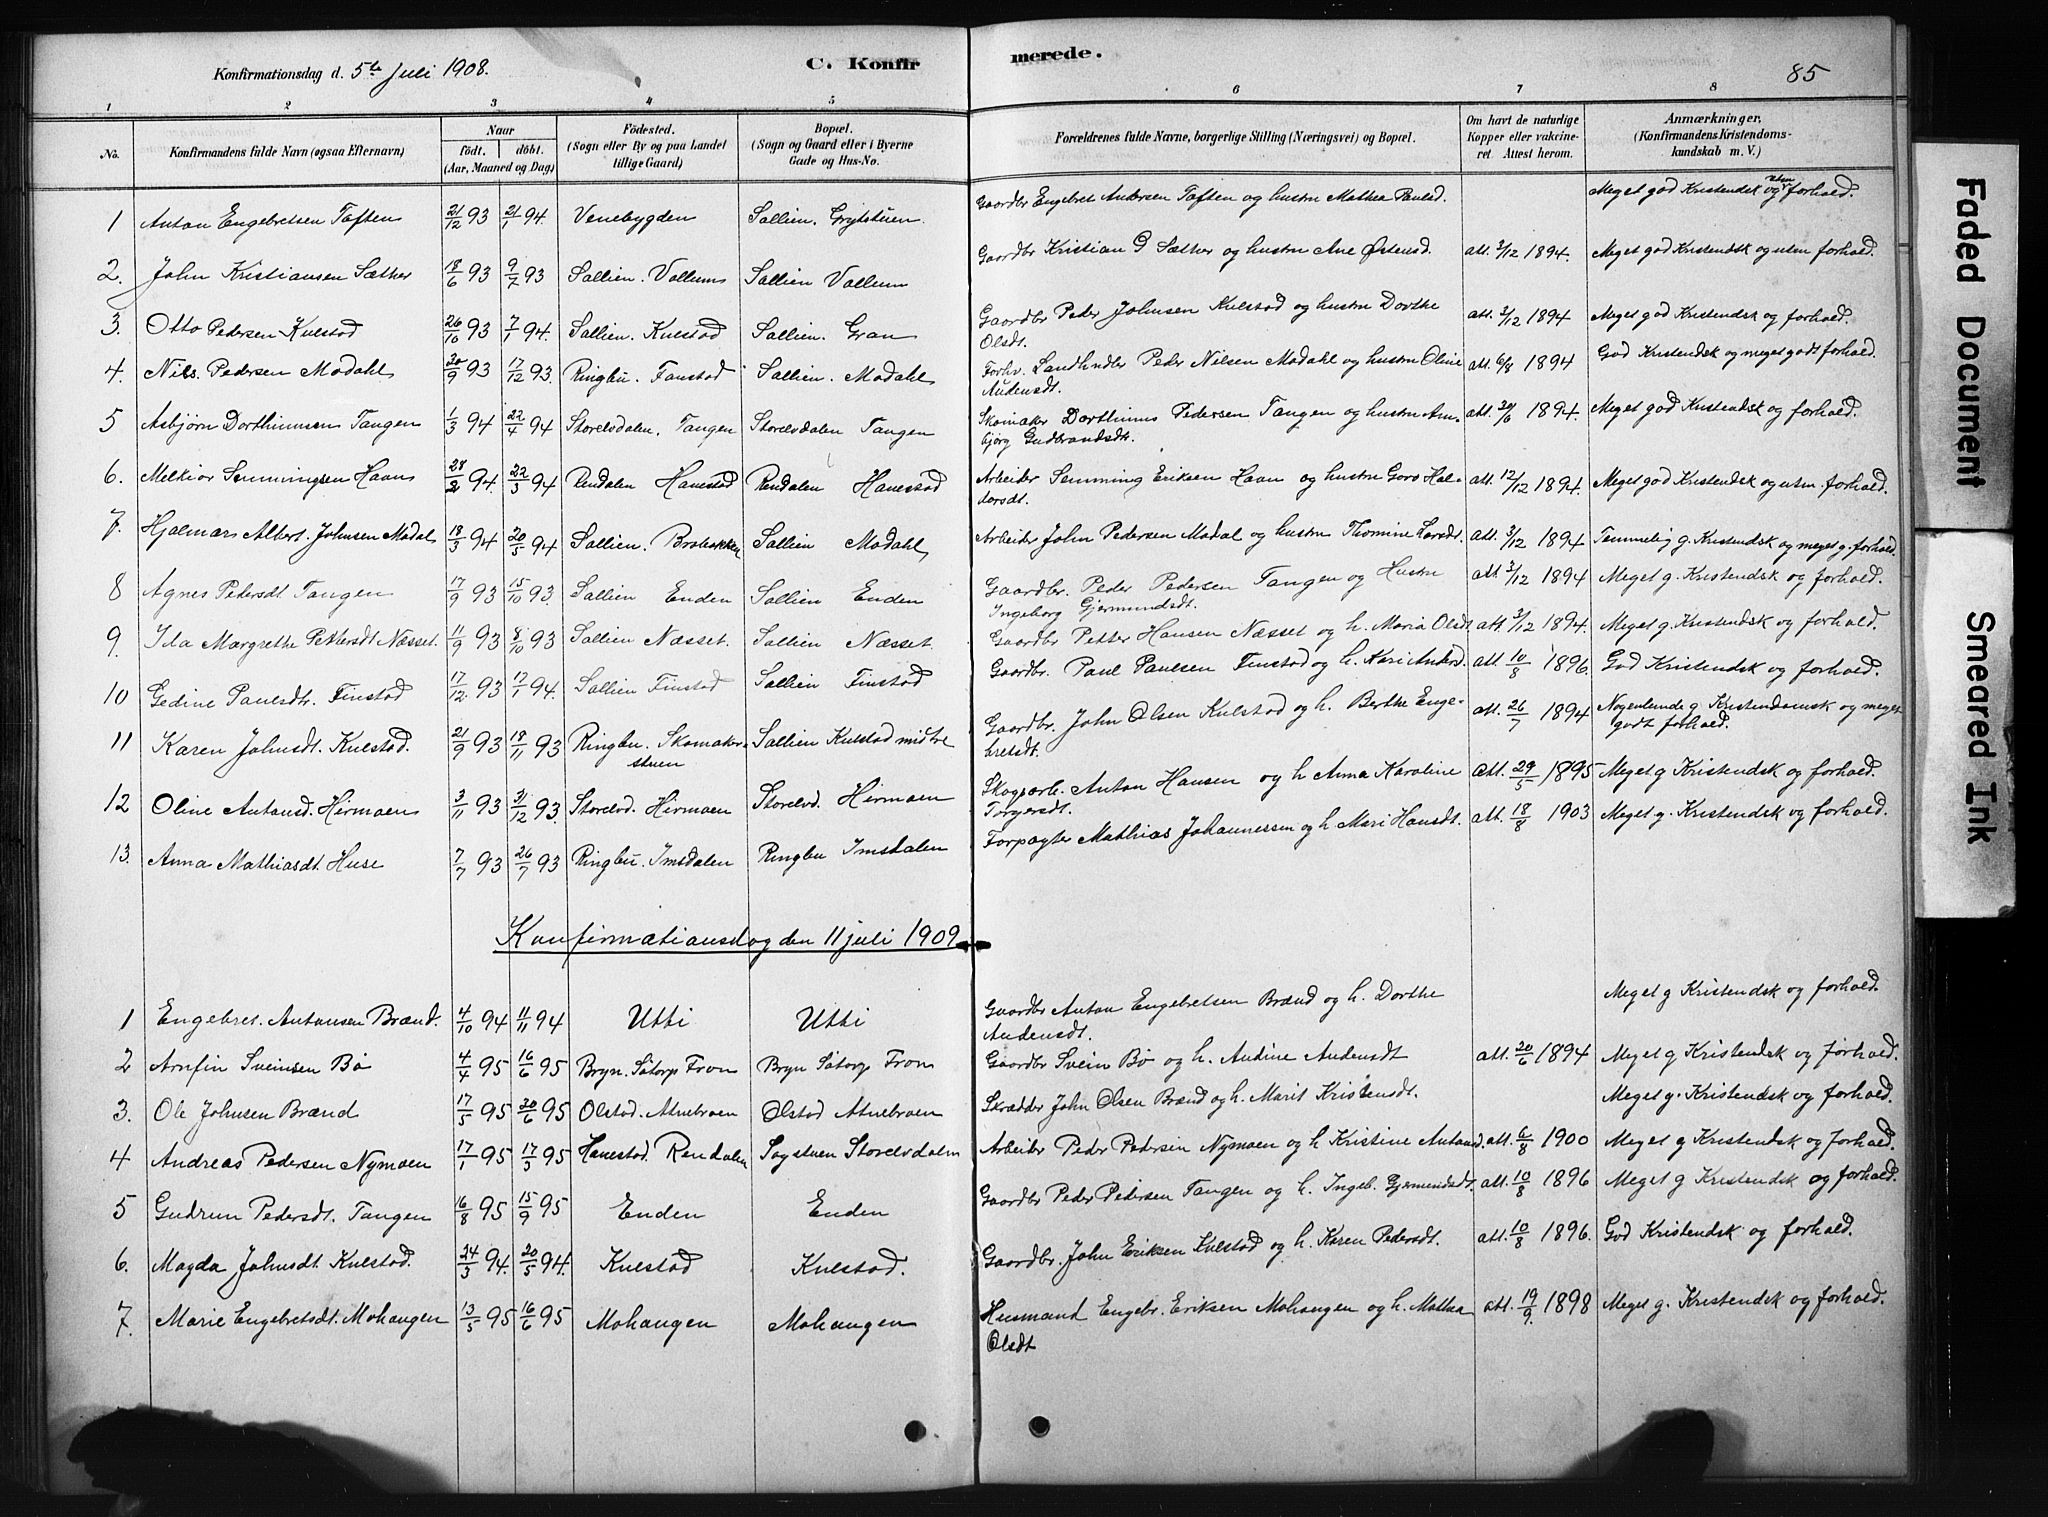 Konfirmationsdag d. 5te Juli 1908. C. Konfir merede. 85
1 2 3 4 5 6 7 8
No. Konfirmandens fulde Navn (ogsaa Efternavn) Naar födt. döbt. (Aar, Maaned og Dag) Födested. (Sogn eller By og paa Landet tillige Gaard) Bopæl. (Sogn og Gaard eller i Byerne Gade og Hus-No. Forældrenes fulde Navne, borgerlige Stilling (Næringsvei) og Bopæl. Om havt de naturlige Kopper eller vakcineret. Attest herom. Anmærkninger. (Konfirmandens Kristendomskundskab m. V.)
1 Anton Engebretsen Toften 21/12 93 21/1 94 Venebygden Sollien. Grytstuen Gaardbr Engebret Andersen Toften og hustru Mathea Paulsd. Meget god Kristendsk og utm forhold.
2. John Kristiansen Sæther 18/6 93 9/7 93 Sollien. Vollum Sollien Vollum Gaardbr Kristian G Sæther og hustru Ane Østensd. att. 3/12 1894. Meget god Kristendsk og utm forhold.
3. Otto Pedersen Kulstad 26/10 93 7/1 94. Sollien. Kulstad Sollien. Gran Gaardbr Peder Johnsen Kulstad og hustru Dorthe
Olsdt. att. 3/12 1894 Meget god Kristendsk og forhold.
4. Nils Pedersen Modahl 20/9 93 17/12 93. Ringbu. Fanstad Sollien. Modahl Forhv. Landhndler Peder Nilsen Modahl og hustru Oline
Audensdt. att. 6/8 1894 God Kristendsk og meget godt forhold.
5 Asbjørn Dorthinusen Tangen 1/3 94 22/4 94 Storelvdalen. Tangen Storelvdalen Tangen Skomaker Dorthinus Pedersen Tangen og hustru Am-
bjørg Gudbrandsdt. att. 30/6 1894. Meget god Kristendsk og forhold.
6. Melkior Semmingsen Haan 28/2 94. 22/3 94 Rendalen Hanestad Rendalen Hanestad Arbeider Semming Eriksen Haan og hustru Goro Hal-
dorsdt. att. 12/12 1894. Meget god Kristendsk og utm. forhold.
7. Hjalmar Albert Johnsen Modal 18/3 94 20/5 94 Sollien. Brobakken Sollien Modahl Arbeider John Pedersen Modal og hustru Thomine Larsdt. att. 3/12 1894 Temmelig g. Kristendsk og meget g. forhold.
8 Agnes Petersdt Tangen 17/9 93 15/10 93. Sollien Enden Sollien Enden Gaardbr. Peder Pedersen Tangen og Hustru
Ingeborg Gjermundsdt. att. 3/12 1894 Meget g. Kristendsk og forhold.
9. Ida Margrethe Pettersdt Næsset. 11/9 93 8/10 93. Sollien Næsset. Sollien Næsset. Gaardbr Petter Hansen Næsset og h. Maria Olsdt att. 3/12 1894. Meget g. Kristendsk og forhold.
10 Gedine Paulsdt. Finstad 17/12 93 17/1 94. Sollien Finstad Sollien Finstad Gaardbr. Paul Paulsen Finstad og h. Kari Andersd. att. 10/8 1896. God Kristendsk og forhold.
11 Karen Johnsdt. Kulstad. 21/9 93 18/11 93. Ringbu. Skomaker-
stuen Sollien Kulstad midtre Gaardbr. John Olsen Kulstad og h. Berthe Enge-
bretsdt. att. 26/7 1894 Nogenlunde g. Kristendomsk og meget
godt forhold.
12 Oline Antonsd. Hirmoen 3/11 93 31/12 93. Storelvd. Hirmoen Storelvd. Hirmoen Skogarb. Anton Hansen og h Anna Karoline
Torgersdt. att. 29/5 1895 Meget g. Kristendsk og forhold.
13. Anna Mathiasdt. Huse 7/7 93 26/7 93 Ringbu. Imsdalen Ringbu Imsdalen Forpagter Mathias Johannessen og h Mari Hansdt. att. 18/8 1903 Meget g. Kristendsk og forhold.
Konfirmationsdag den 11 juli 1909
1 Engebret. Antonsen Brænd. 4/10 94 11/11 94 Utti Utti Gaardbr Anton Engebretsen Brænd og h. Dorthe
Audensdt. Meget g Kristendsk og forhold.
2 Arnfin Sveinsen Bø 4/4 95 16/6 95 Bryn. Sötorp Fron Bryn Sötorp Fron Gaardbr Svein Bø og h. Andine Audensdt att. 20/6 1894 Meget g. Kristendsk og forhold.
3. Ole Johnsen Brænd 17/5 95 30/6 95 Olstad. Atnebroen Olstad Atnebroen Skrædder John Olsen Brænd og h. Marit Kristensdt. Meget g. Kristendsk og forhold.
4 Andreas Pedersen Nymoen 17/1 95 17/3 95 Hanestad. Rendalen Sagstuen Storelvdalen Arbeider Peder Pedersen Nymoen og h Kristine Antonsd. att. 6/8 1900 Meget g Kristendsk og forhold.
5 Gudrun Pedersdt. Tangen 16/8 95 15/9 95 Enden Enden Gaardbr Peder Pedersen Tangen og h. Ingeb. Gjermundsdt. att. 10/8 1896 Meget g Kristendsk og forhold.
6. Magda Johnsdt Kulstad. 24/3 94. 20/5 94. Kulstad Kulstad. Gaardbr. John Eriksen Kulstad og h. Karen Pedersdt. att. 10/8 1896. God Kristendsk og forhold.
7. Marie Engebretsdt. Mohaugen 13/5 95 16/6 95 Mohaugen Mohaugen Husmand Engebr. Eriksen Mohaugen og h. Mathea
Olsdt att. 19/9. 1898 Meget g. Kristendsk og forhold.
Faded Document
Smeared Ink